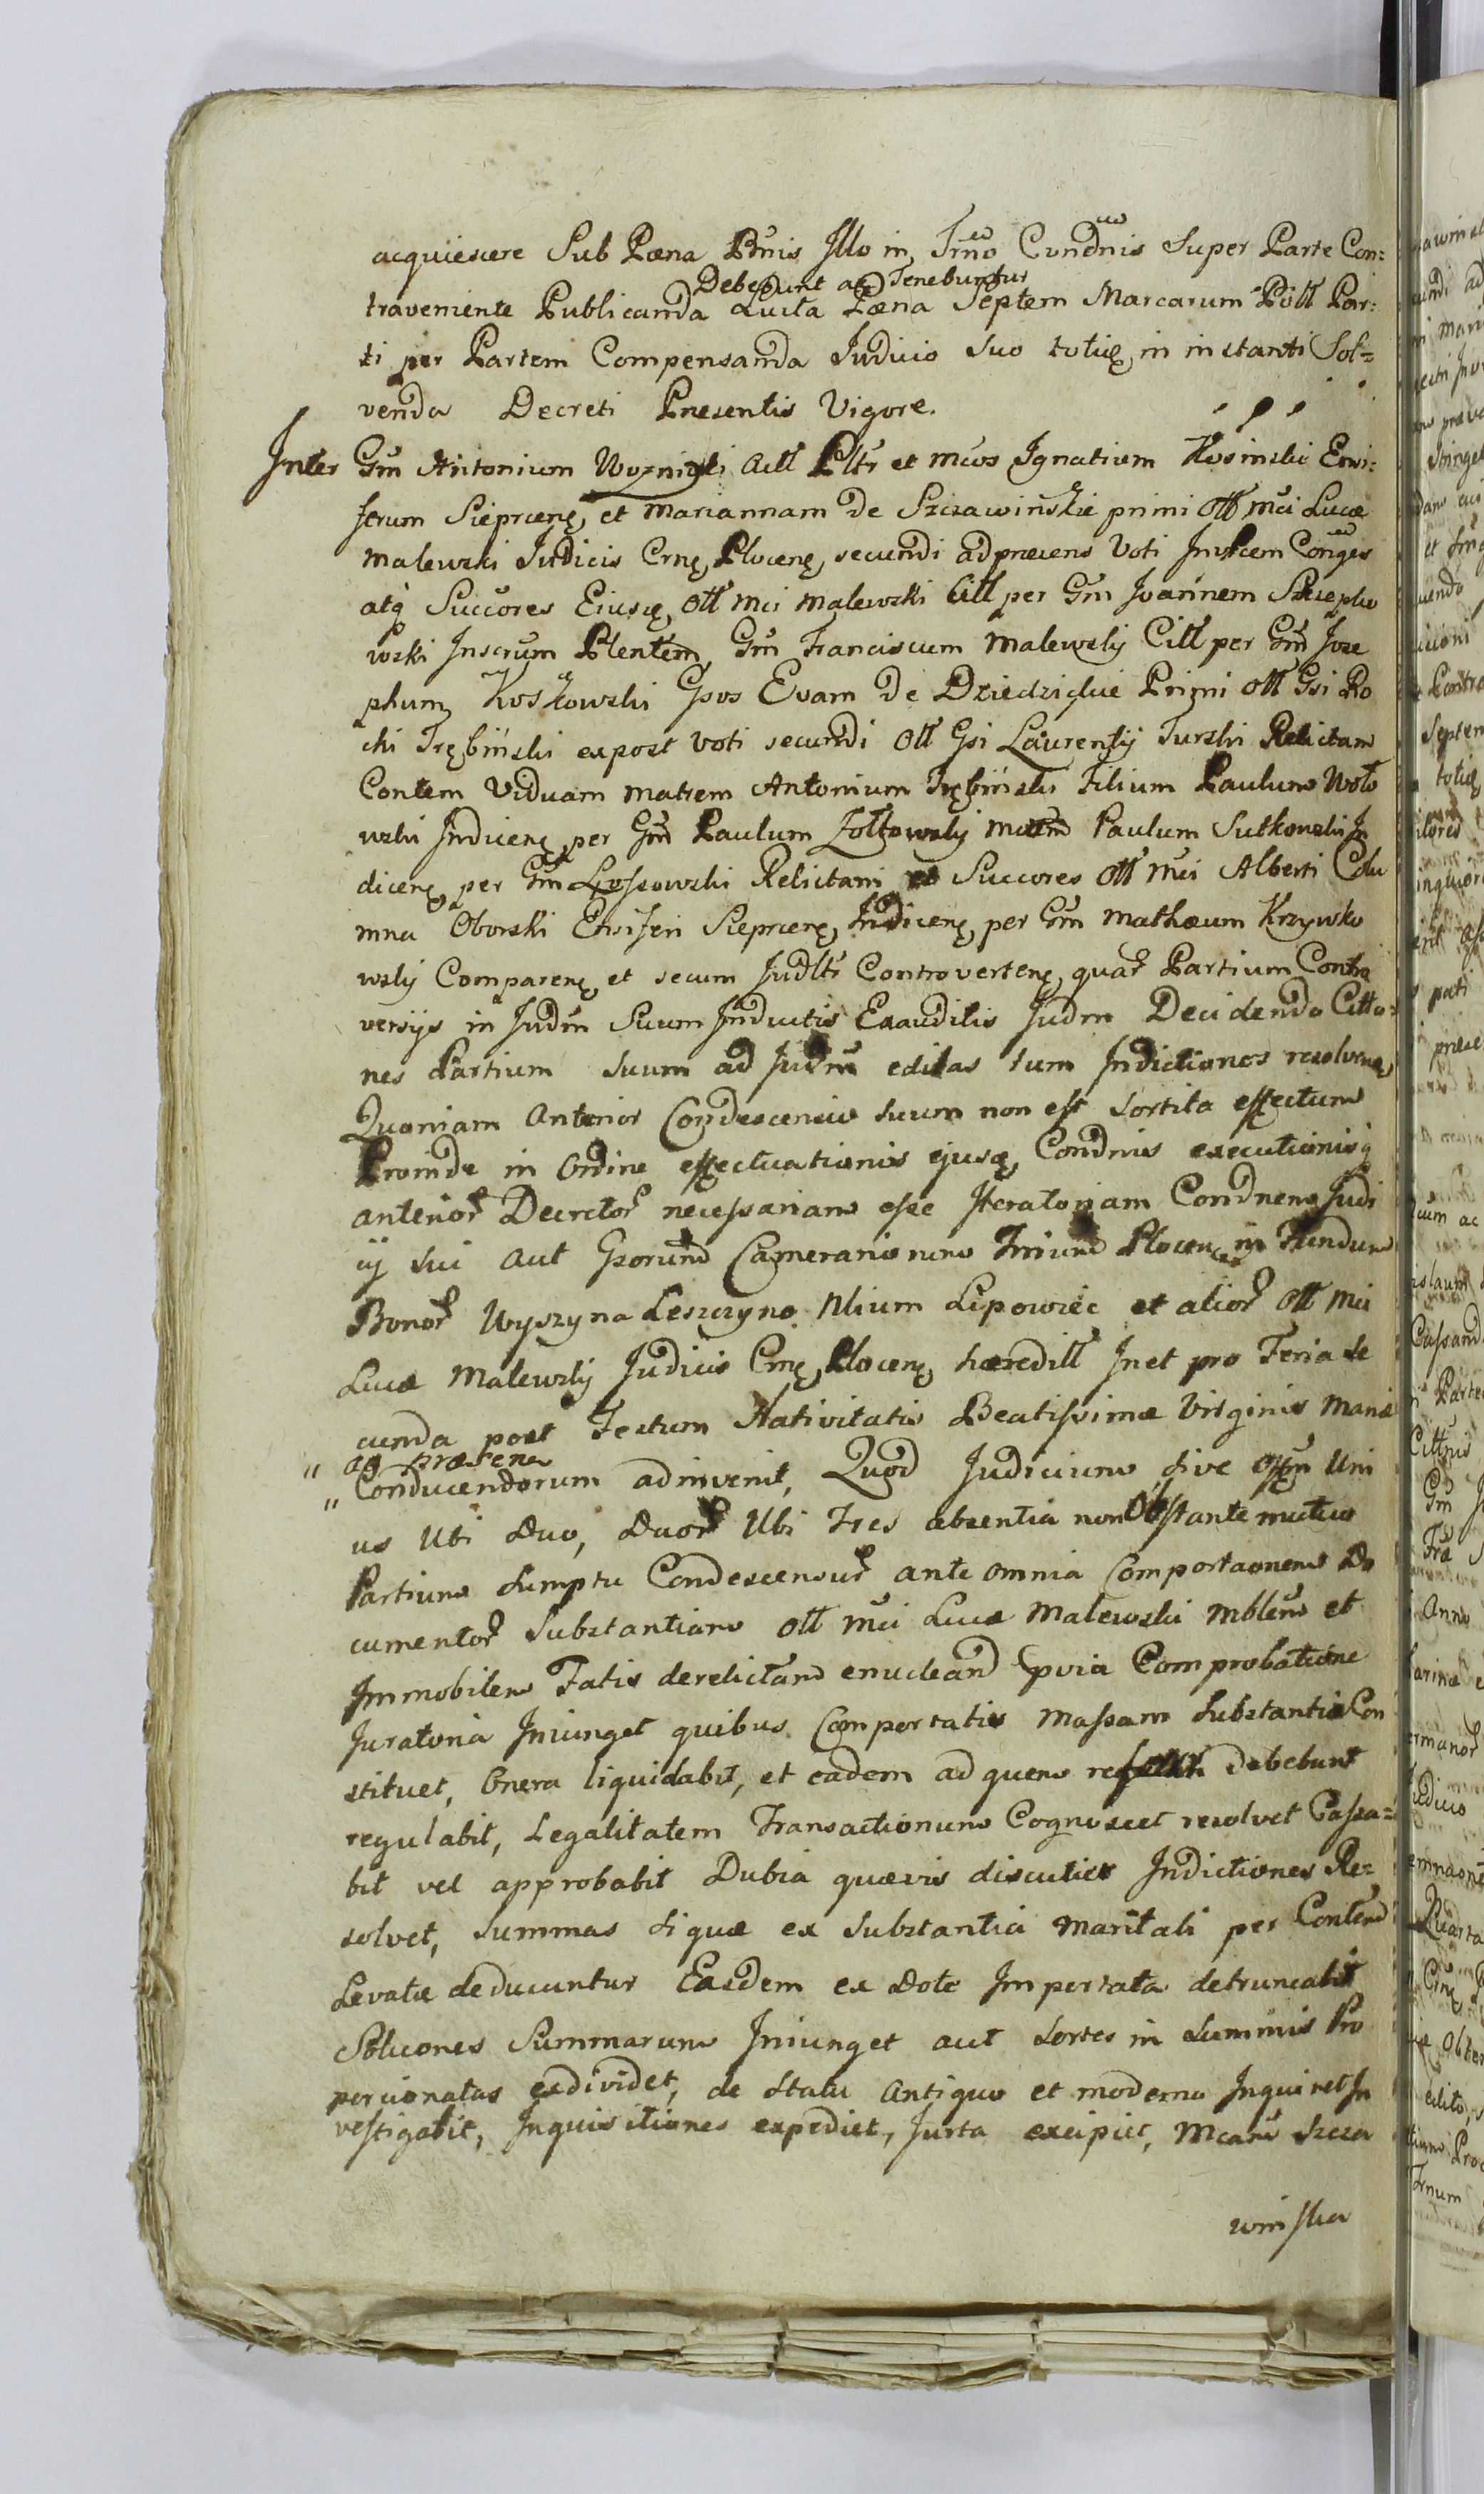 acquiescere Sub Pæna Bnis Illo in Trno Condnis Super Parte Con:
Debebunt atq Tenebuntur
traveniente Publicanda Luita Pæna Septem Marcarum Pott Par:
ti per Partem Compensanda Judicio Suo totię in instanti Sol=
venda Decreti Præsentis Vigore.
Inter Gm Antonium Woznicki Actt Pltr et mcos Ignatium Kosinski Ensi:
ferum Sieprcenę et Mariannam de Szczawińskie primi Ott mci Lucæ
Malewski Judicis Crnę Plocenę, secundi ad præsens Voti Invicem Conges
atq Succores Eiusę, Ott Mci Malewski Citt per Gm Joannem Szczepko
wski Inscrum Plentem, Gm Franciscum Malewsky Citt per Gm Jose
phum Kosłowski Gsos Evam de Dziedzickie Primi Ott Gsi Ro
chi Trębiński expost Voti secundi Ott Gsi Laurentij Turski Relictam
Contem Viduam Matrem Antonium Trębiński Filium Paulum Woło
wski Indicenę per Gm Paulum Zołtowsky Mcum Paulum Sutkowski In
dicenę per Gm Lossowski Relictam et Succores Ott Mci Alberti Colu
mna Oborski Ensiferi Sieprcenę, Indicenę per Gm Mathæum Krzywko
wsky Comparenę et secum Judltr Controvertenę, quar Partium Contro
versijs in Judm Suum Inductis Exauditis Judm Decidendo Citto=
nes Partium Suum ad Judm editas tum Indictiones resolvenę
Quoniam Anterior Condescensio Suum non est Sortita effectum
Proinde in Ordine effectuationis ejusę, Condnis executionisq
anterior Decretor necessariam esse Iteratoriam Condnem Judi
cij Sui aut Gsorum Camerariorum Trium Plocenę in Fundum
Bonor Wyszyna Leszczyno Nlium Lipowiec et alior Ott Mci
Lucæ Malewsky Judicis Crnę Plocenę hæreditt Inet pro Feria Se
cunda post Festum Nativitatis Beatissimæ Virginis Mariæ
" ad præsens
" Conducendorum adinvenit, Quod Judicium sive Offm Uni
us Ubi Duo, Duor Ubi Tres absentia non Obstante mutuo
Partium Sumptu Condescensur ante omnia Comportaonem Do
cumentor Substantiam Ott Mci Lucæ Malewski Mblem et
Immobilem Fatis derelictam enucleand prvia Comprobatione
Juratoria Iniunget quibus Comportatis Massam Substantiæ Con
stituet, Onera liquidabit, et eadem ad quem debebunt
regulabit, Legalitatem Transactionum Cognoscet resolvet Cassa=
bit vel approbabit Dubia quævis discutiet Indictiones Re=
solvet, Summas si quæ ex Substantia Maritali per Contem
Levatæ deducuntur Easdem ex Dote Importata detruncabit
Soluones Summarum Iniunget aut Sortes in Summis Pro
porcionatas exdividet, de Statu Antiquo et moderno Inquiret In
vestigabit, Inquisitiones expediet, Jurta excipiet, Mcam Szcza
winska